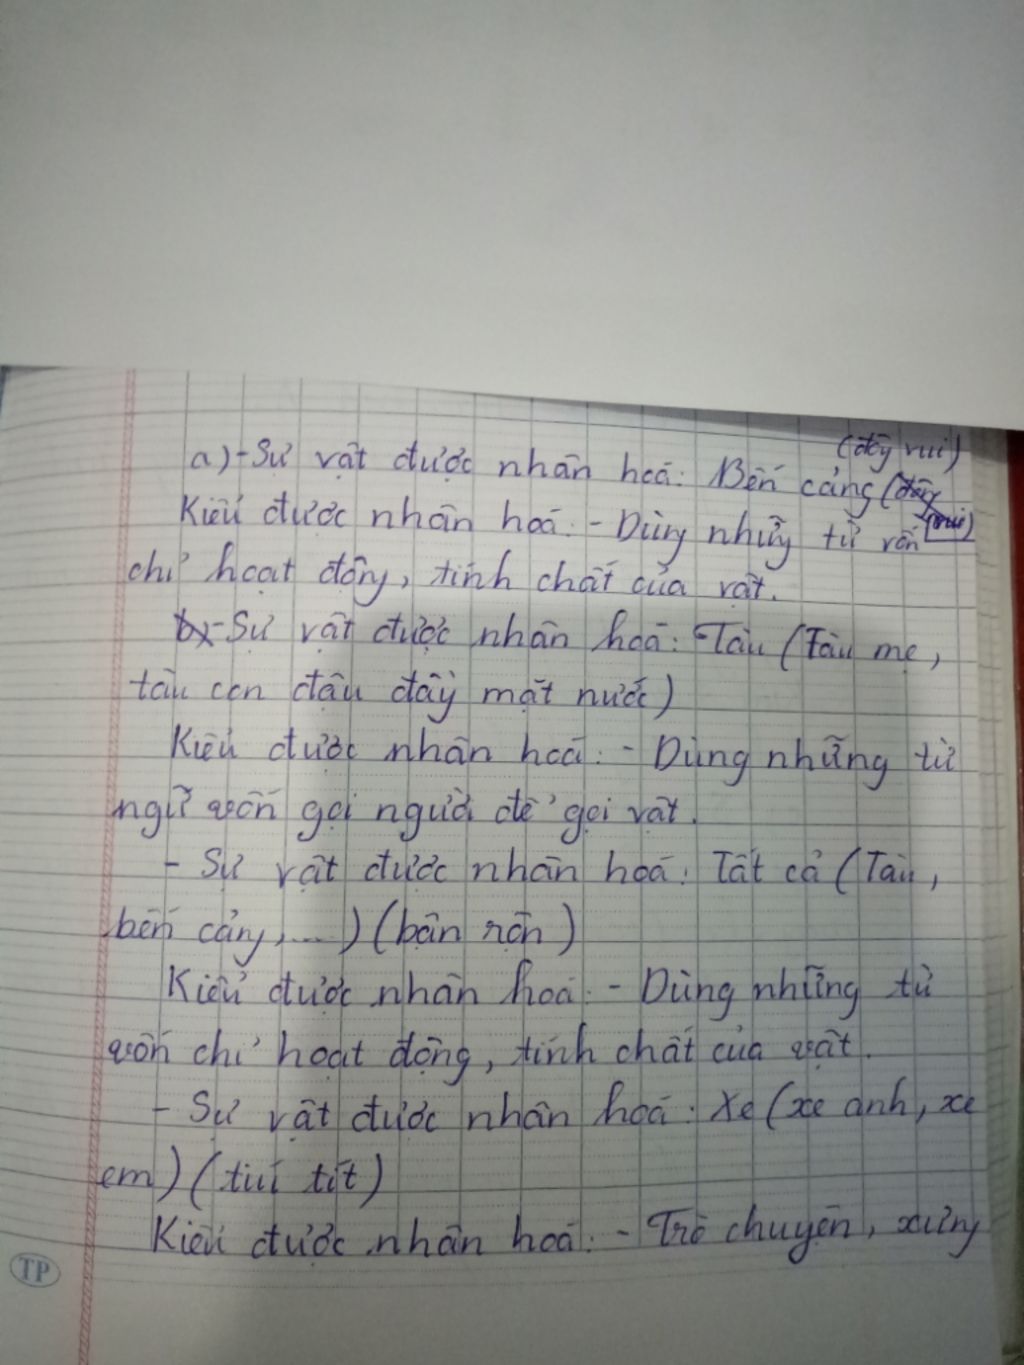 (đầy vui)
a) - Sự vật được nhân hoá: Bến cảng (đầy vui)
Kiểu được nhân hoá: - Dùng những từ vốn
chỉ hoạt động, tính chất của vật.
- Sự vật được nhân hoá: Tàu (Tàu mẹ,
tàu con đậu đầy mặt nước)
Kiểu được nhân hoá: - Dùng những từ
ngữ vốn gọi người để gọi vật.
- Sự vật được nhân hoá: Tất cả (Tàu,
bến cảng,...) (bận rộn)
Kiểu được nhân hoá: - Dùng những từ
vốn chỉ hoạt động, tính chất của vật.
- Sự vật được nhân hoá: Xe (xe anh, xe
em) (tíu tít)
Kiểu được nhân hoá: - Trò chuyện, xưng
TP